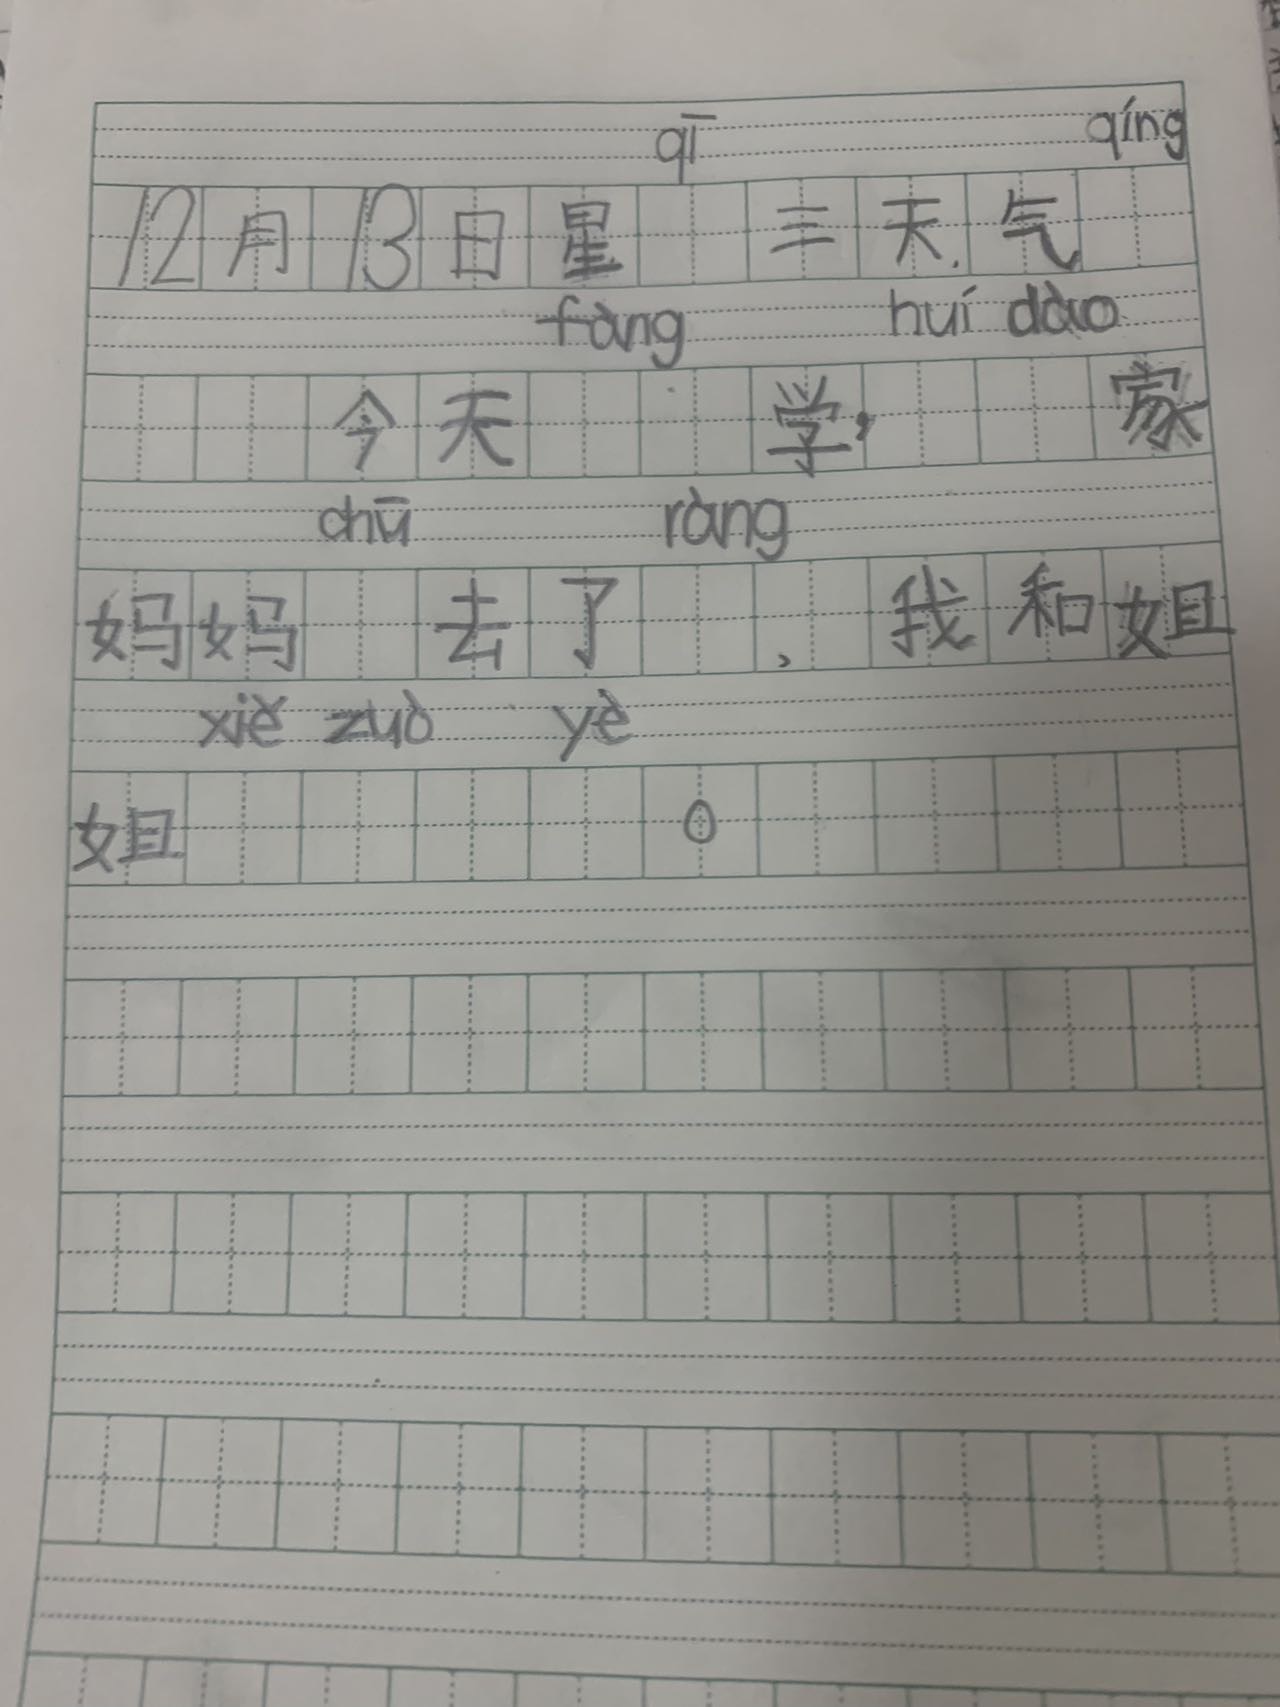 qī qíng
12月13日星 三天气
fàng huí dào
今天 学， 家
chū ràng
妈妈 去了 ，我和姐
xiě zuò yè
姐 。